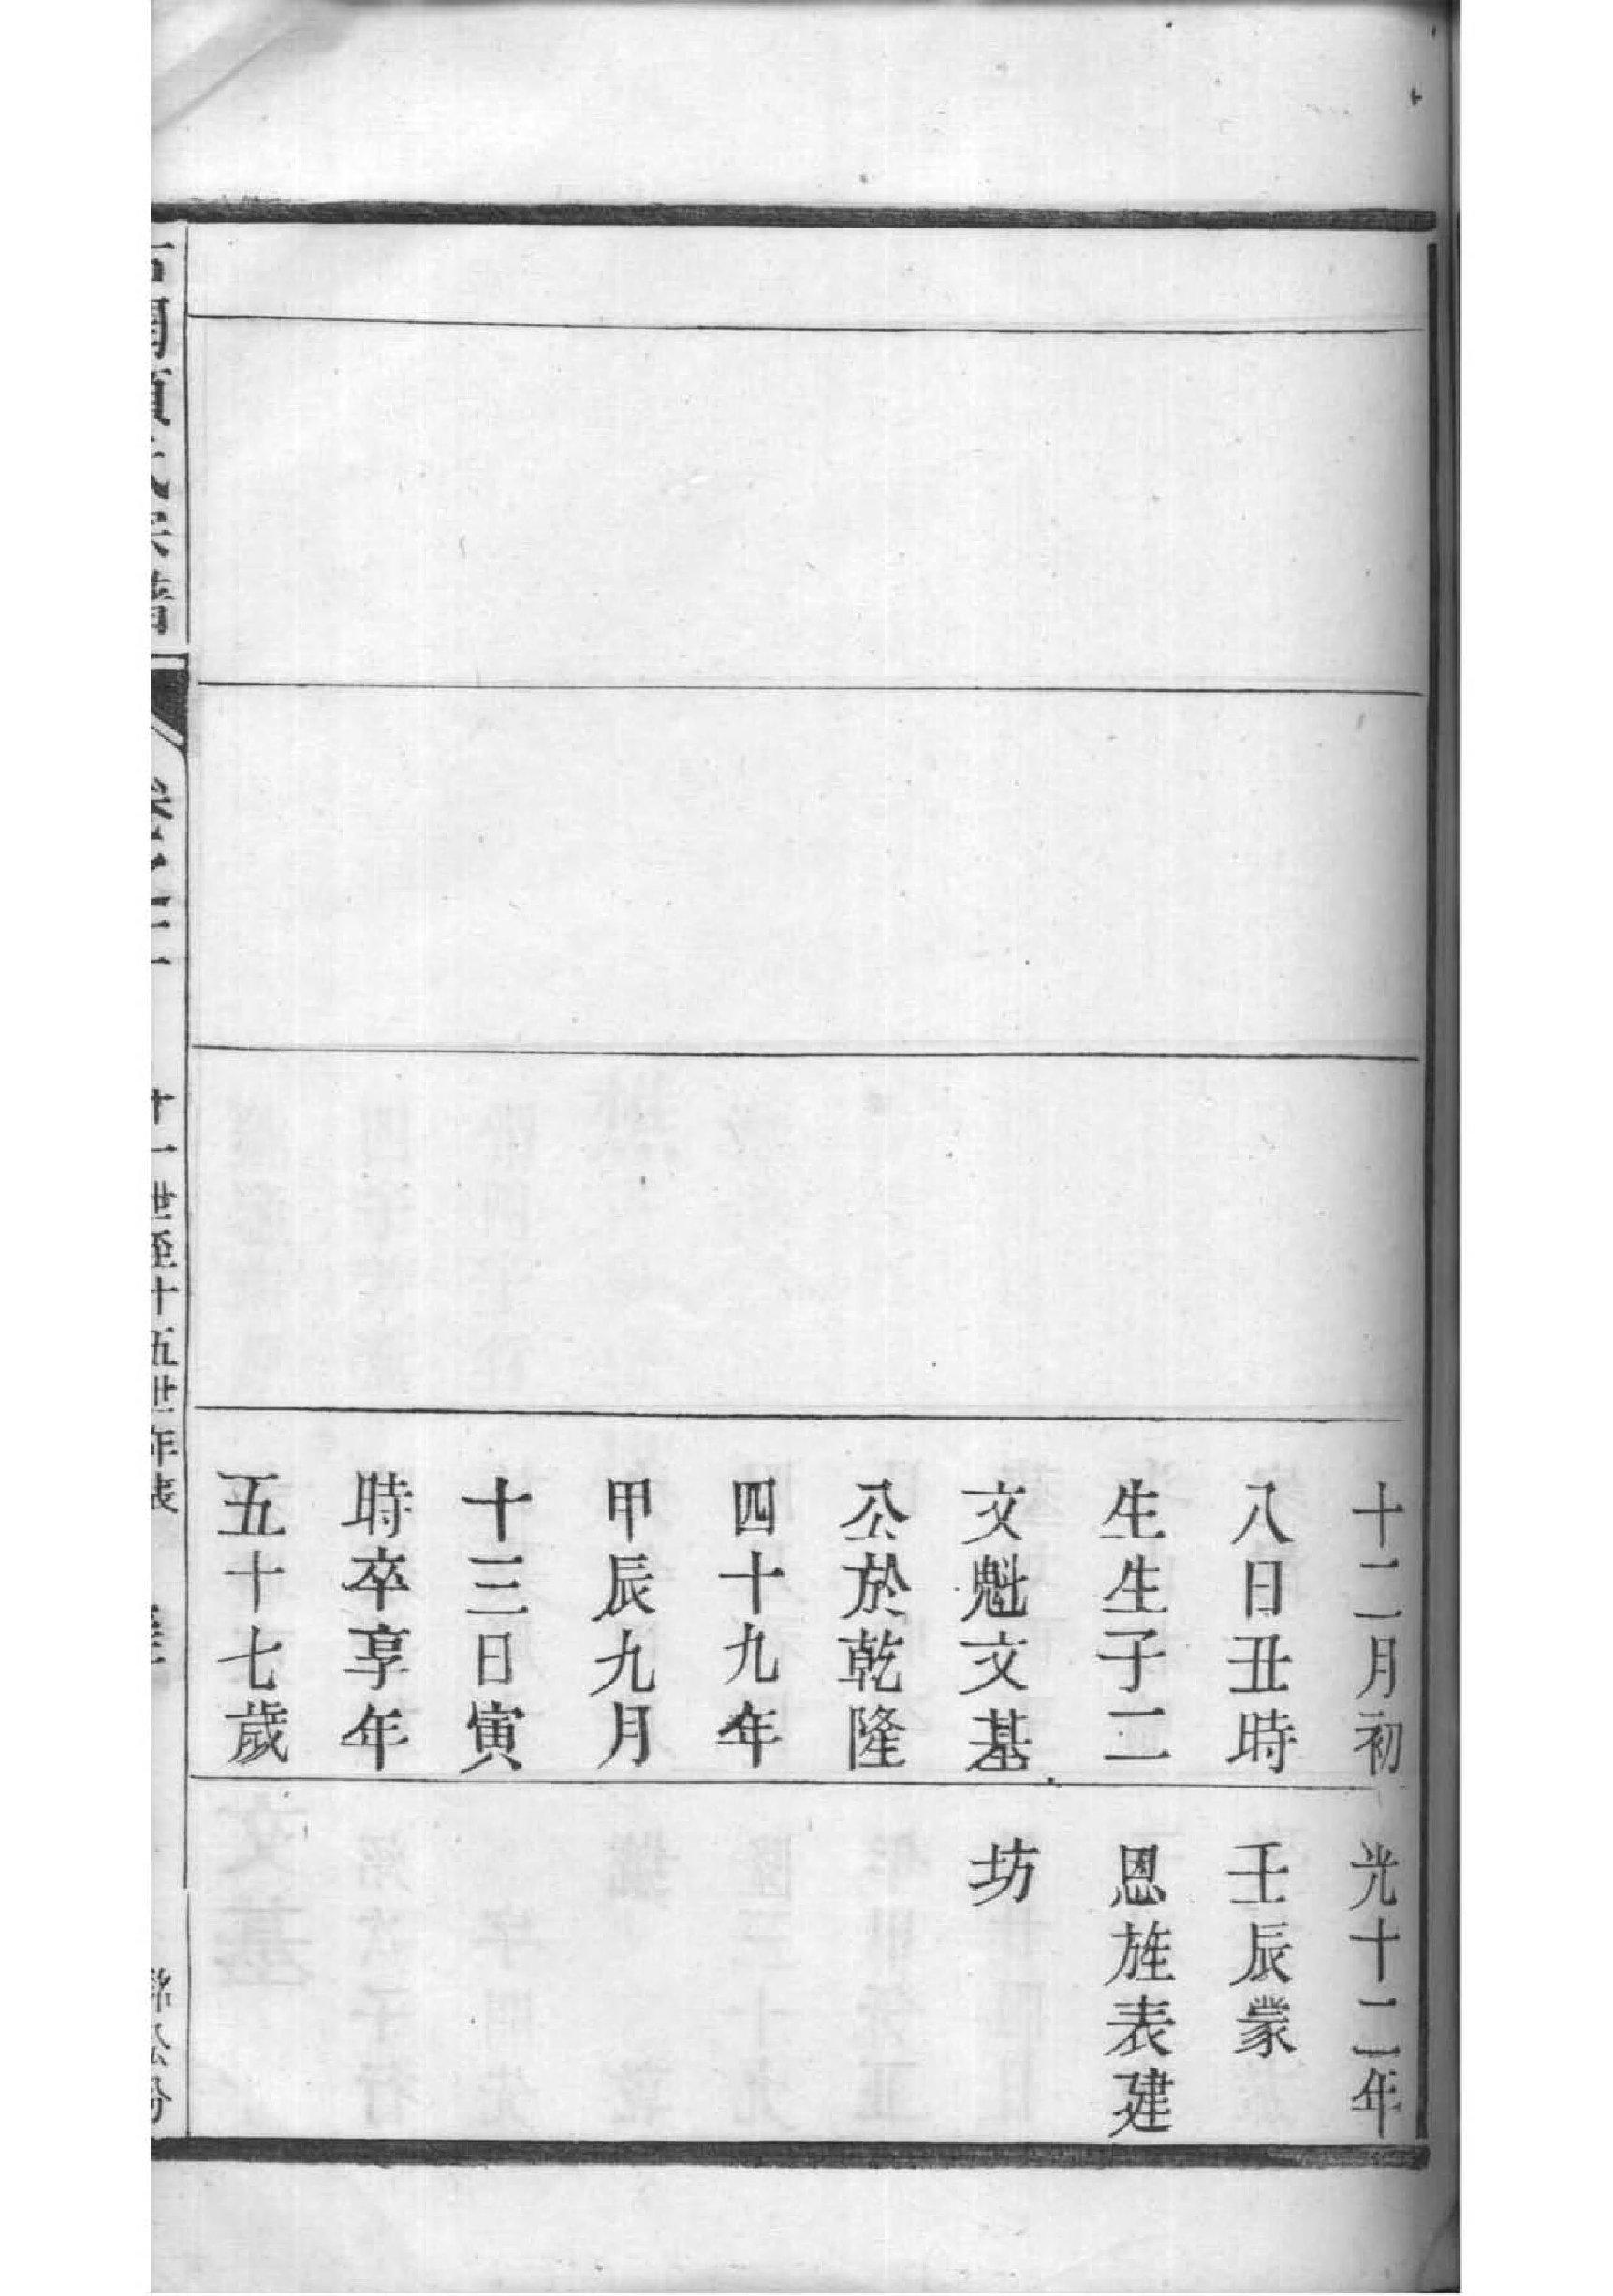 十二月初
八日丑時
生生子二
文魁文基
公於乾隆
四十九年
甲辰九月
十三日寅
時卒享年
五十七歲
光十二年
壬辰蒙
恩旌表建
坊
十一世至十五世年表